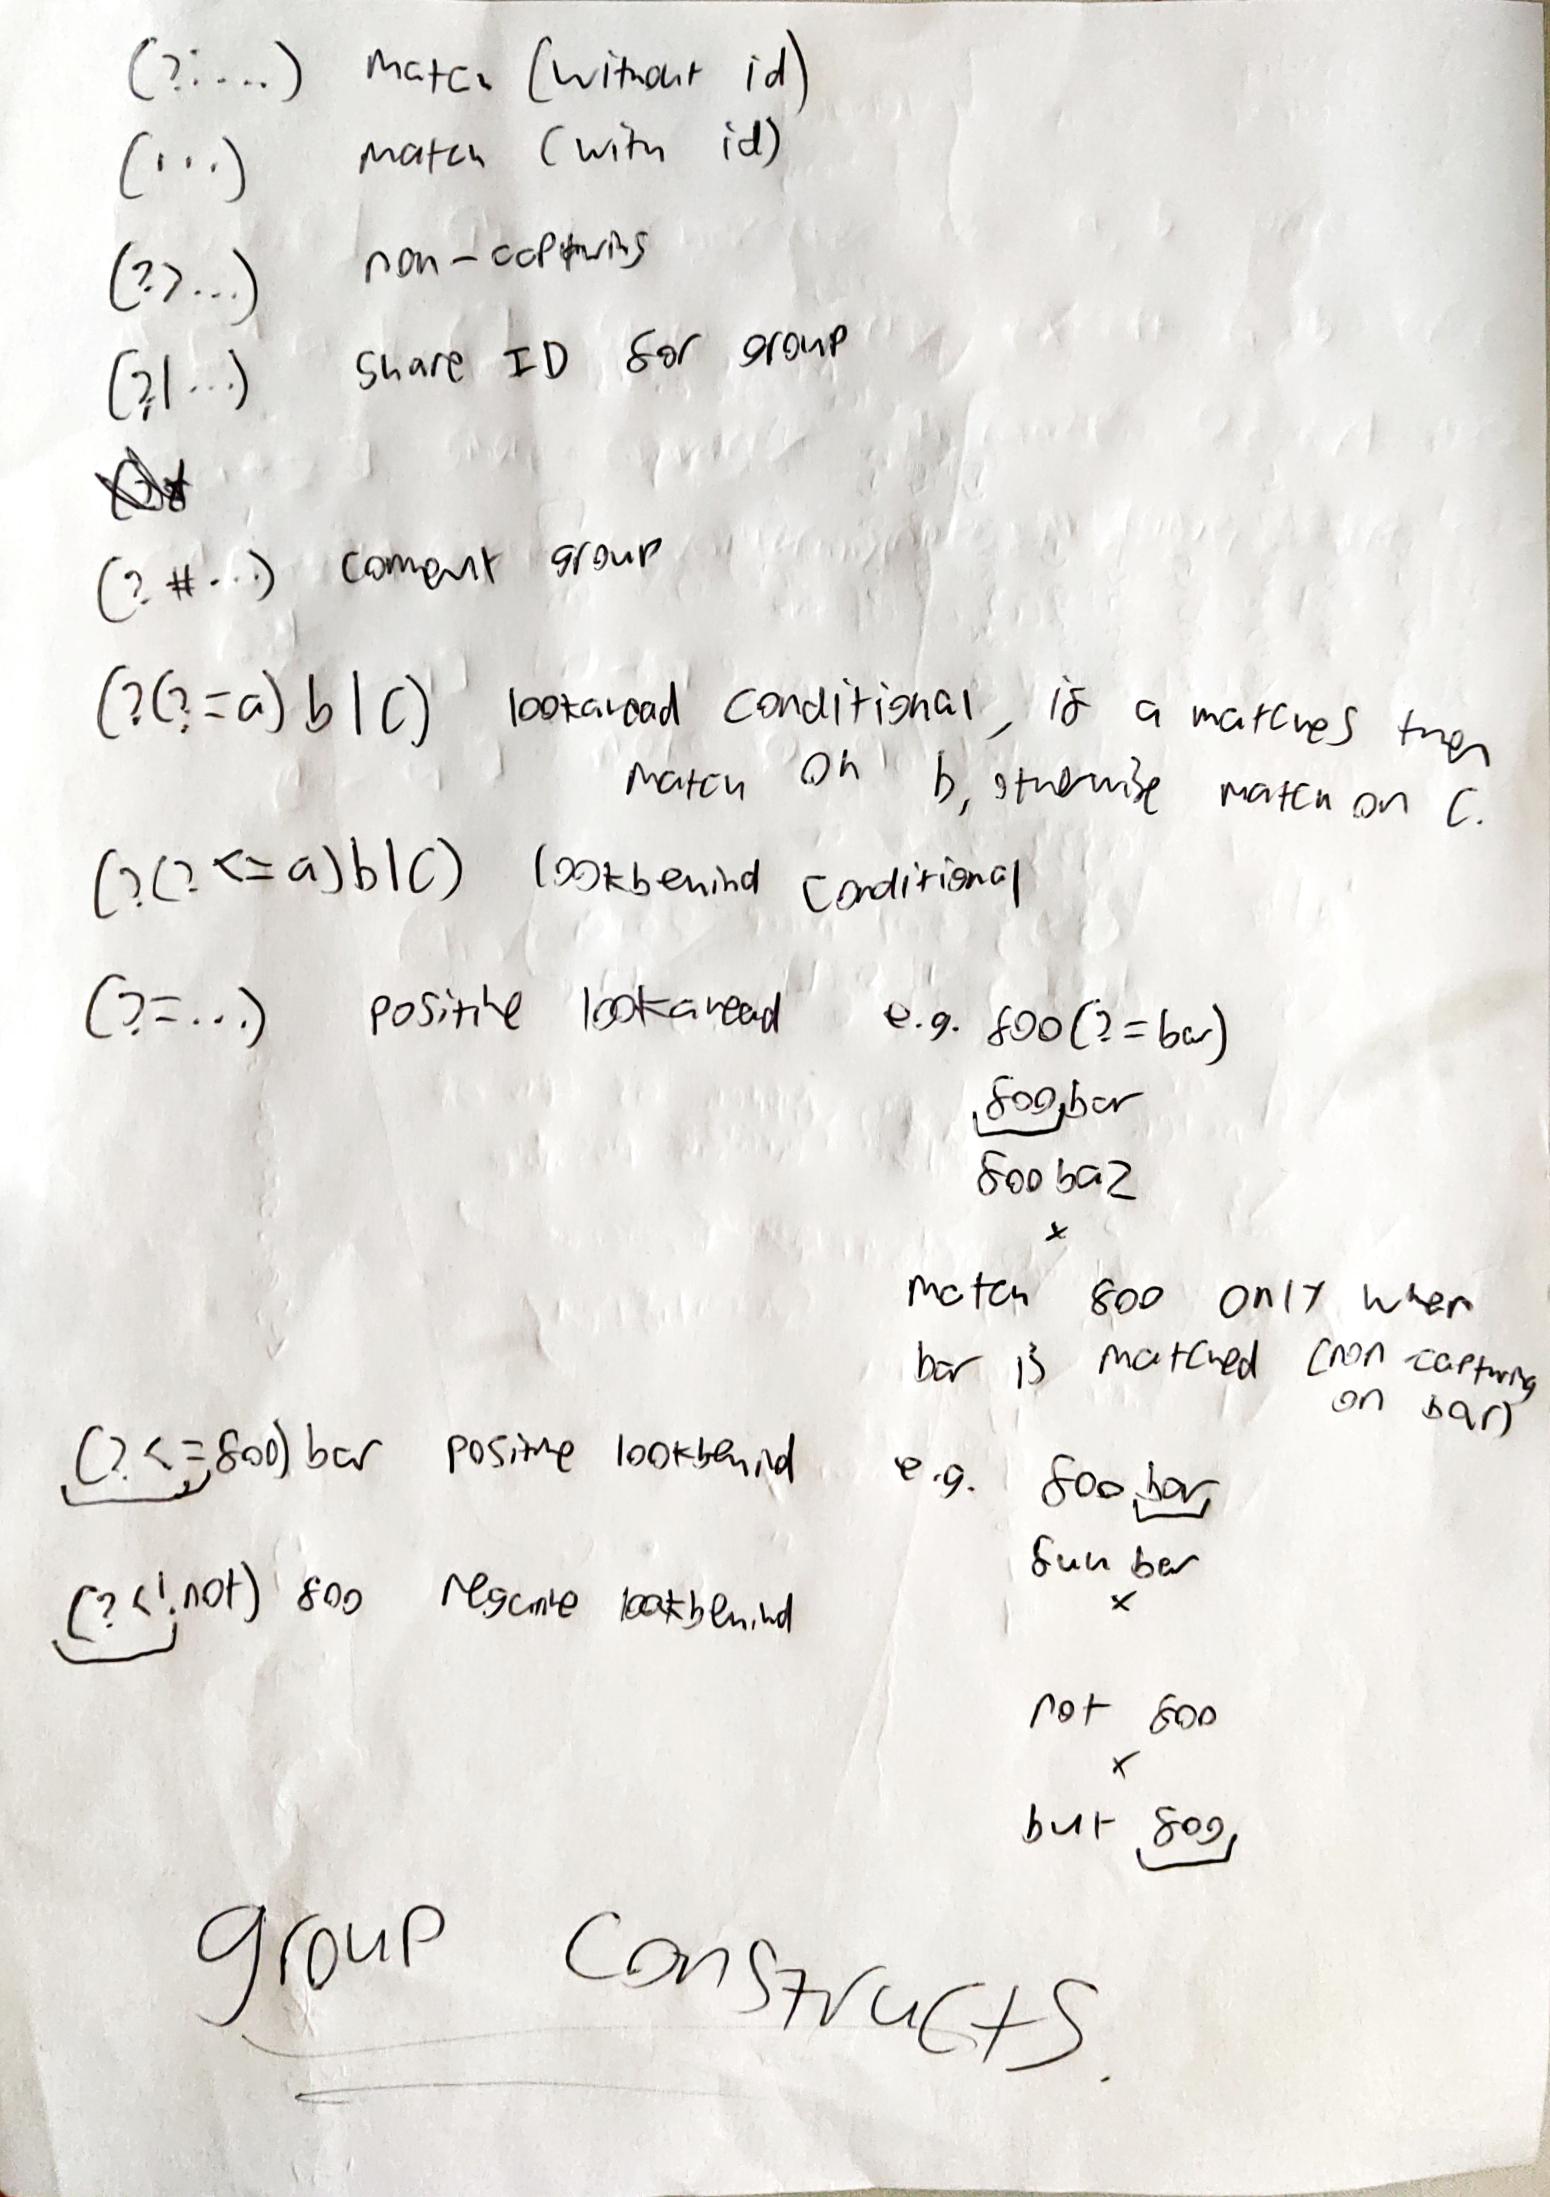 (?:...) match (without id)
(...) match (with id)
(?>...) non-capturing
(?|...) share ID for group
(?#...) coment group
(?(?=a)b|c) lookahead conditional, if a matches then
match on b, otherwise match on c.
(?(?<=a)b|c) lookbehind conditional
(?=...) positive lookahead e.g. foo(?=bar)
foobar
foobaz
x
match foo only when
bar is matched (non-capturing
on bar)
(?<=foo)bar positive lookbehind e.g. foobar
fun bar
x
(?<!not) foo negative lookbehind
not foo
x
but foo
group constructs.